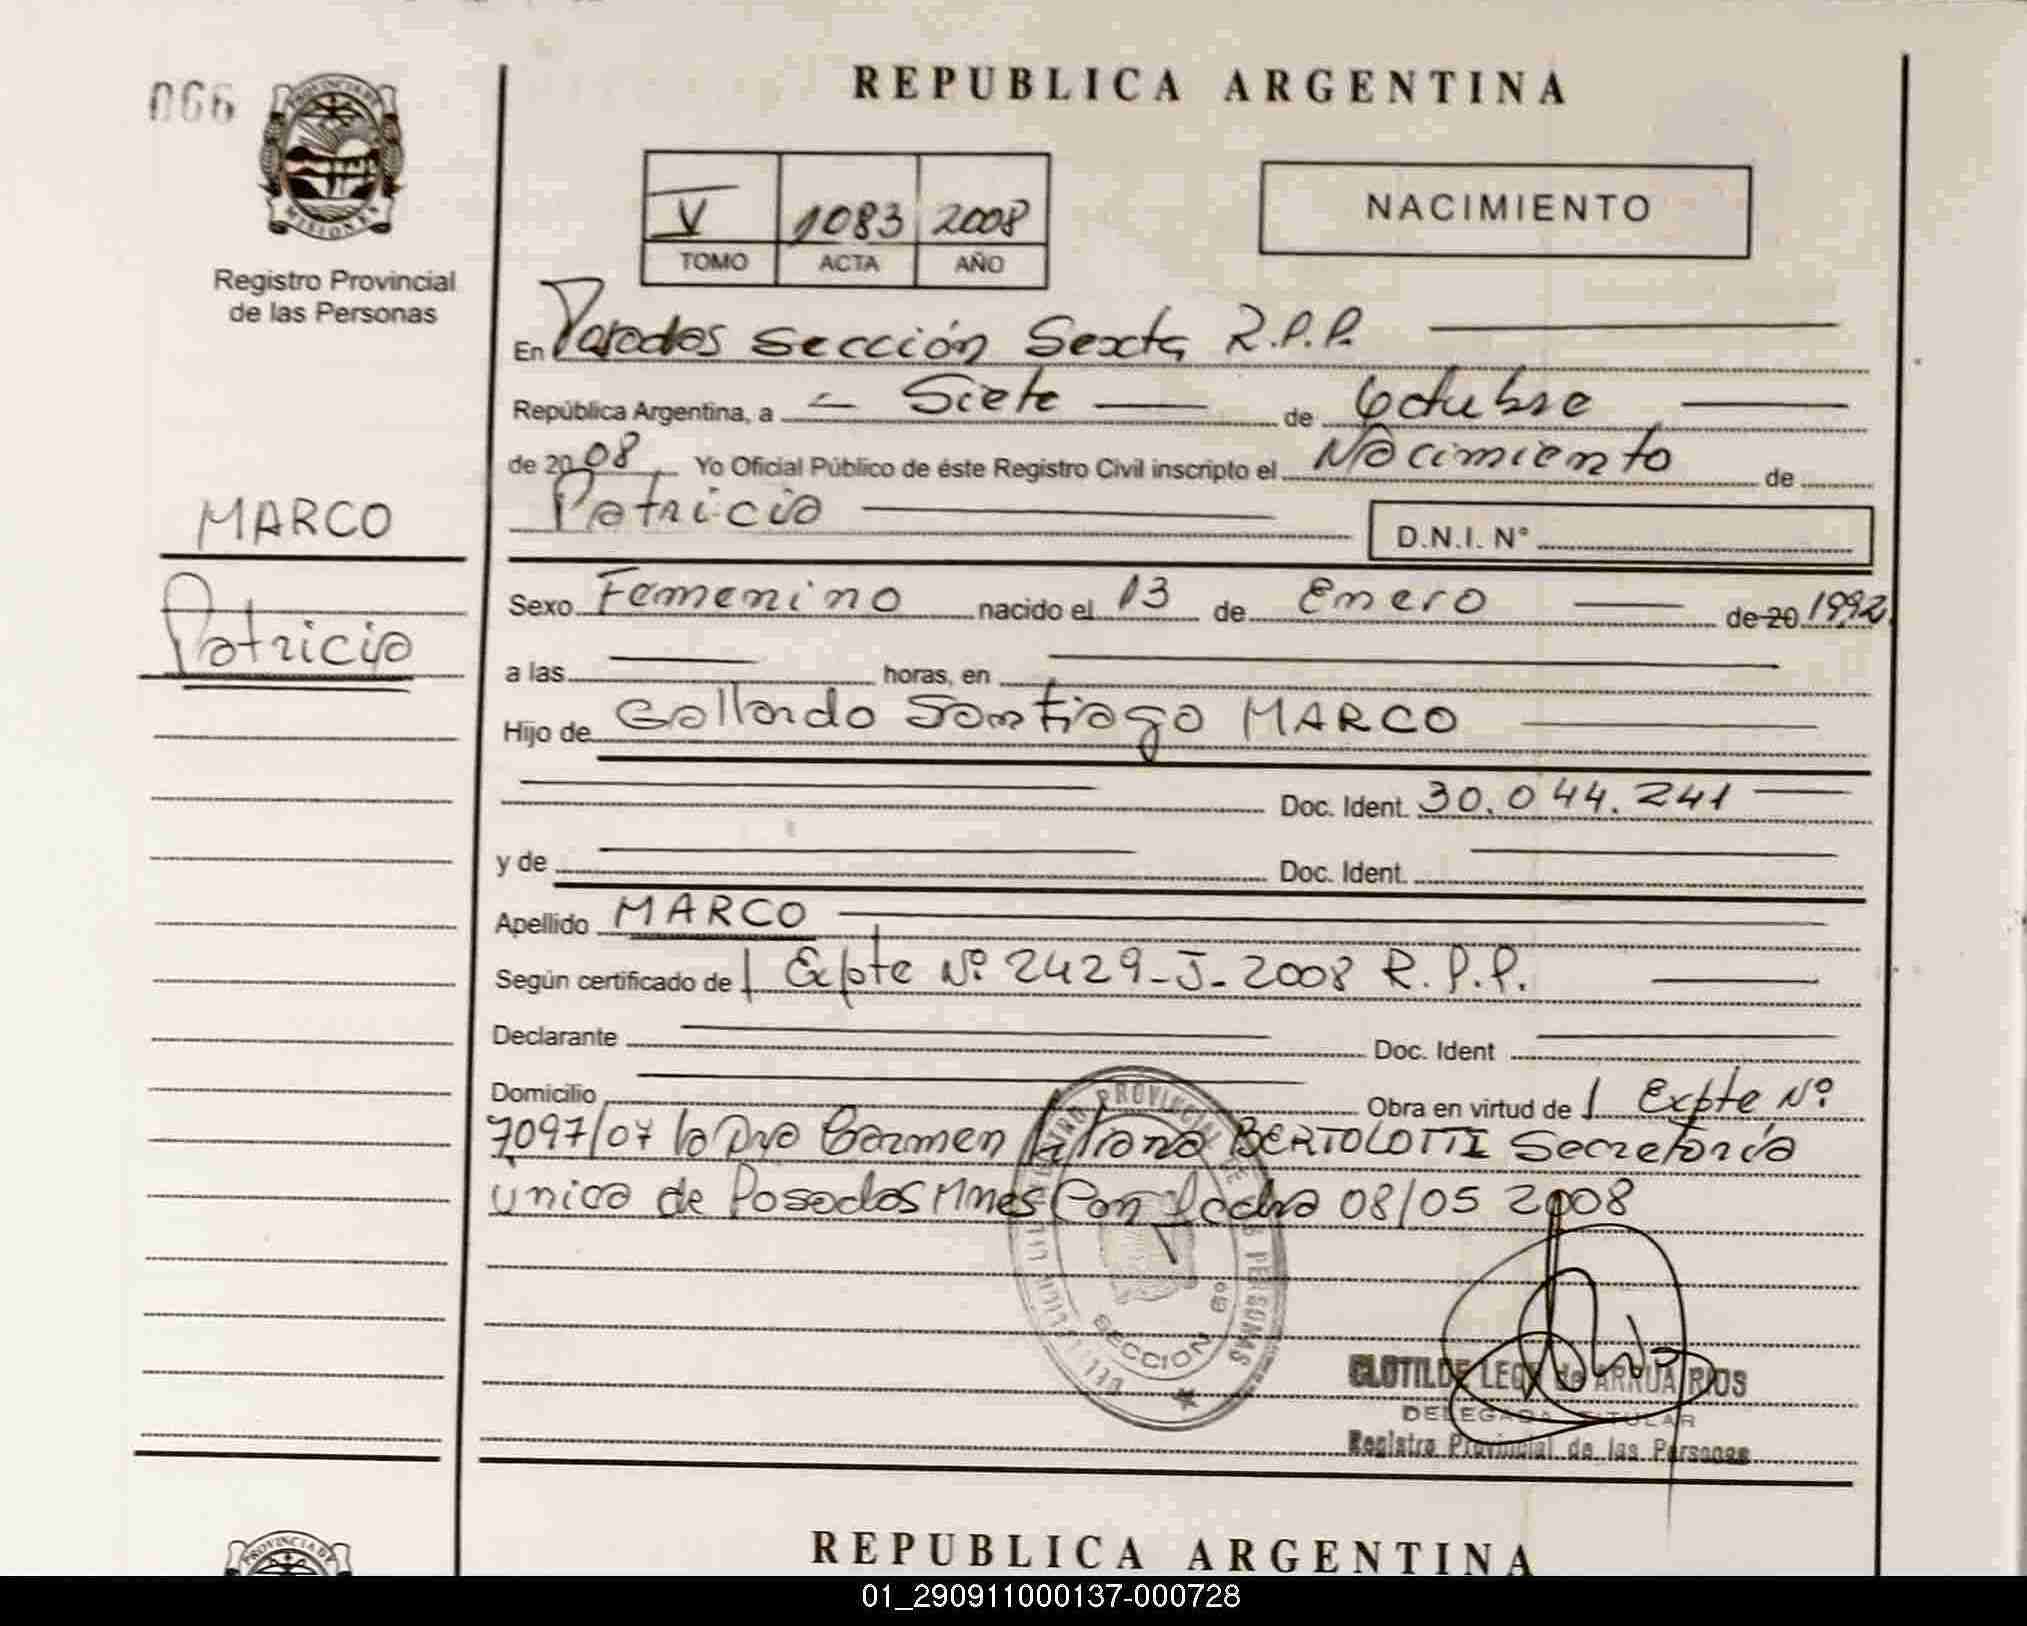 066
PROVINCIA DE
MISIONES
Registro Provincial
de las Personas
REPUBLICA ARGENTINA
V 1083 2008
TOMO ACTA AÑO
NACIMIENTO
En Posadas sección Sexta R.P.P.
República Argentina, a Siete de Octubre
de 2008 Yo Oficial Público de éste Registro Civil inscripto el Nacimiento de
Patricia
D.N.I. N°
MARCO
Patricia
Sexo Femenino nacido el 13 de Enero de 20 1992
a las horas, en
Hijo de Gallardo Santiago MARCO
Doc. Ident. 30.044.241
y de Doc. Ident.
Apellido MARCO
Según certificado de Expte Nº 2429-J-2008 R.P.P.
Declarante Doc. Ident
Domicilio Obra en virtud de Expte Nº
7097/07 la Dra Carmen BERTOLOTTI Secretaría
única de Posadas Mnes Con fecha 08/05 2008
REGISTRO PROVINCIAL DE LAS PERSONAS
SECCION 6º
CLOTILDE de ARRUA RIOS
DELEGADA TITULAR
Registro Provincial de las Personas
PROVINCIA DE
REPUBLICA ARGENTINA
01_290911000137-000728